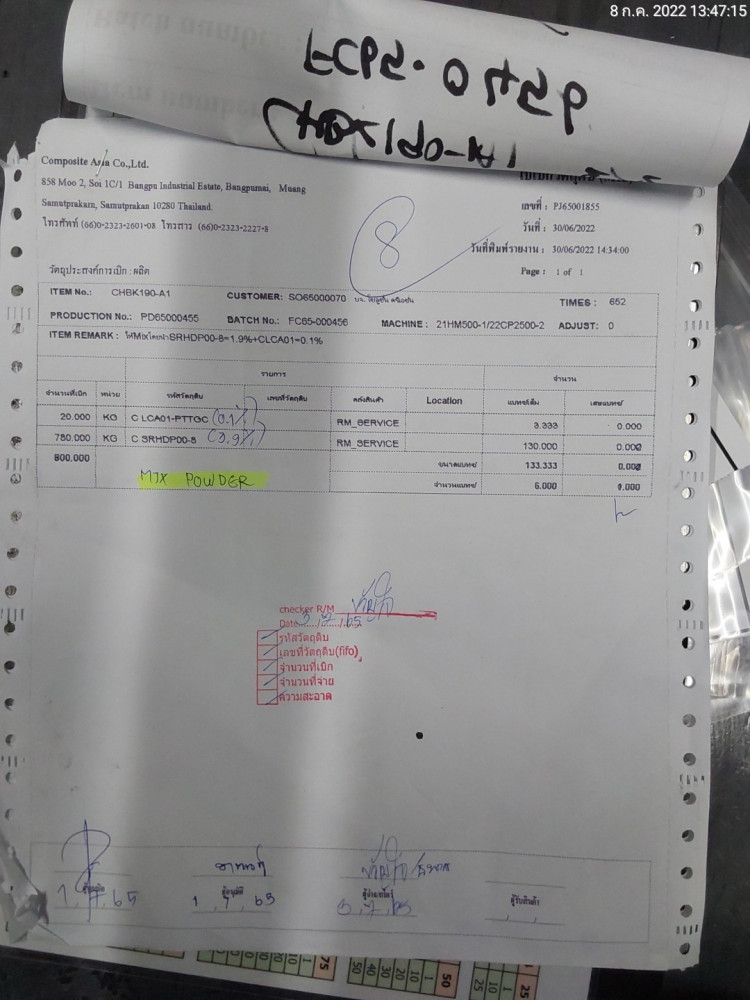 8 ก.ค. 2022 13:47:15
Composite Asia Co.,Ltd.
858 Moo 2, Soi 1C/1 Bangpu Industrial Estate, Bangpumai, Muang
Samutprakarn, Samutprakan 10280 Thailand.
โทรศัพท์ (66)0-2323-2601-08 โทรสาร (66)0-2323-2227-8
8
เลขที่ : PJ65001855
วันที่ : 30/06/2022
วันที่พิมพ์รายงาน : 30/06/2022 14:34:00
Page : 1 of 1
วัตถุประสงค์การเบิก : ผลิต
ITEM No.: CHBK190-A1 CUSTOMER: SO65000070 TIMES : 652
PRODUCTION No.: PD65000455 BATCH No.: FC65-000456 MACHINE : 21HM500-1/22CP2500-2 ADJUST: 0
ITEM REMARK : SRHDP00-8=1.9%+CLCA01=0.1%
รายการ จำนวน
จำนวนที่เบิก หน่วย รหัสวัตถุดิบ เลขที่วัตถุดิบ คลังสินค้า Location แบทช์เต็ม เศษแบทช์
20.000 KG C LCA01-PTTGC (0.1%) RM_SERVICE 3.333 0.000
780.000 KG C SRHDP00-8 (3.9%) RM_SERVICE 130.000 0.000
800.000 ขนาดแบทช์ 133.333 0.000
MIX POWDER จำนวนแบทช์ 6.000 0.000
checker R/M
Date 5/7/65
รหัสวัตถุดิบ
เลขที่วัตถุดิบ(fifo)
จำนวนที่เบิก
จำนวนที่จ่าย
ความสะอาด
ผู้อนุมัติ ผู้รับสินค้า
1 7 65 1 7 65 5 7 65